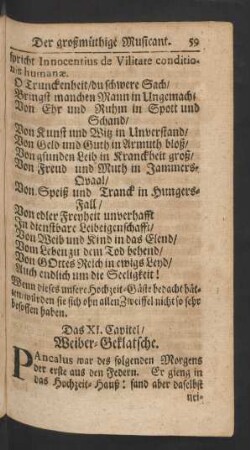 Der großmüthige Musicant. 59
spricht Innocentius de Vilitate conditio-
nis humanæ.
O Trunckenheit/ du schwere Sach/
Bringst manchen Mann in Ungemach;
Von Ehr und Ruhm in Spott und
Schand/
Von Kunst und Witz in Unverstand/
Von Geld und Guth in Armuth bloß/
Von gsunden Leib in Kranckheit groß/
Von Freud und Muth in Jammers-
Qvaal/
Von Speiß und Tranck in Hungers-
Fall/
Von edler Freyheit unverhafft
In dienstbare Leibeigenschafft/
Von Weib und Kind in das Elend/
Vom Leben zu dem Tod behend/
Von GOttes Reich in ewigs Leyd/
Auch endlich um die Seeligkeit!
Wenn dieses unsere Hochzeit-Gäste bedacht hät-
ten/ würden sie sich ohn allen Zweiffel nicht so sehr
besoffen haben.
Das XI. Capitel/
Weiber-Geklatsche.
PAncalus war des folgenden Morgens
der erste aus den Federn. Er gieng in
das Hochzeit-Hauß: fand aber daselbst